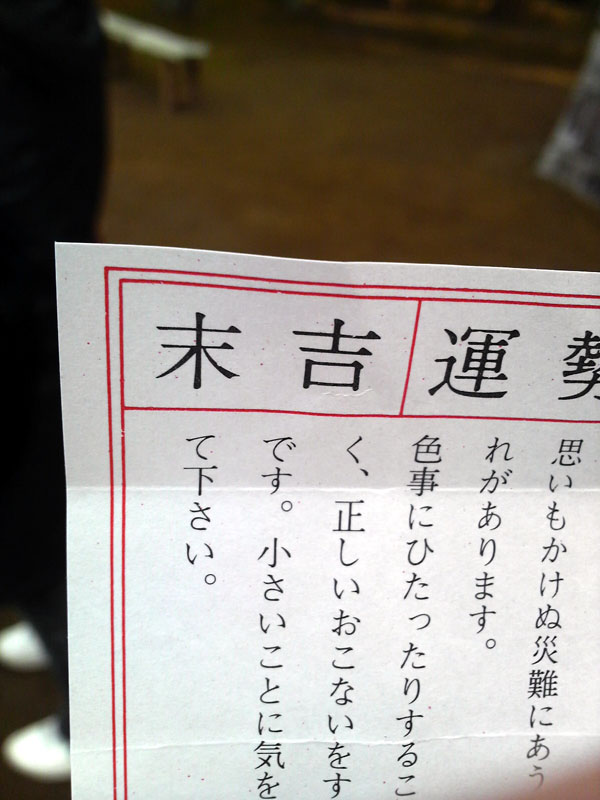 運勢 末吉
思いもかけぬ災難にあう
れがあります。
色事にひたったりするこ
く、正しいおこないをす
です。小さいことに気を
て下さい。